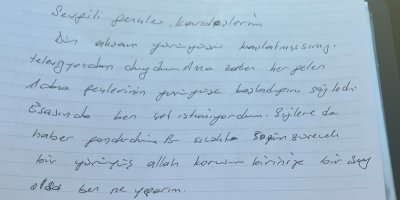 Sevgili gençler, kardeşlerim
Dün akşam yürüyüşü başlatmışsınız.
telavizyondan duydum Ama zaten her gelen
Adına gençlerinin yürüyüşe başladığını söyledi
Esasında ben çok istemiyordum. Sizlere de
haber gönderdim. Bu sıcakta 5 gün sürecek
bir yürüyüş allah korusun birinize bir şey
olsa ben ne yaparım.